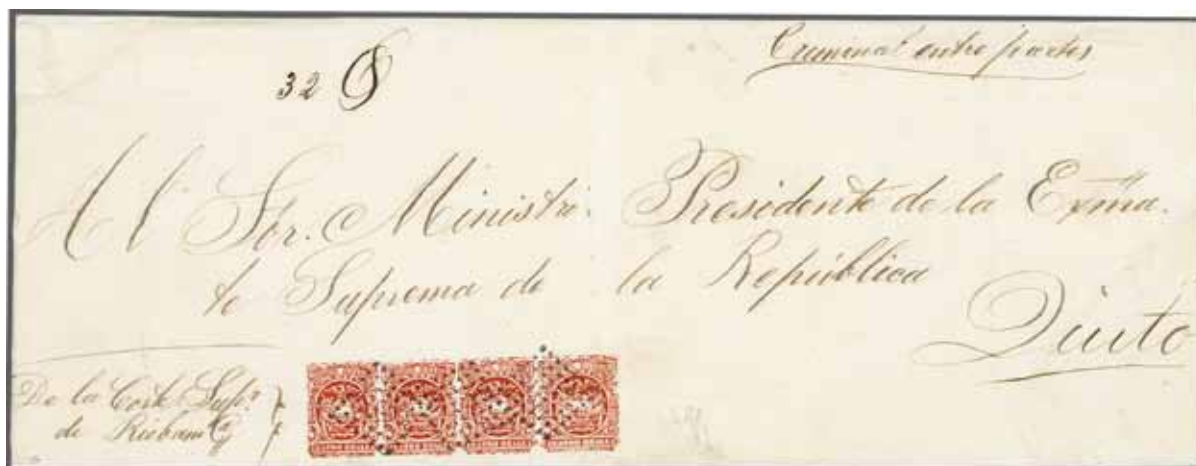 Criminal entre partes
32
Al Sor. Ministro Presidente de la Exma.
te Suprema de la República
Quito
De la Corte Supr.
de Riobamba
CUATRO REALES